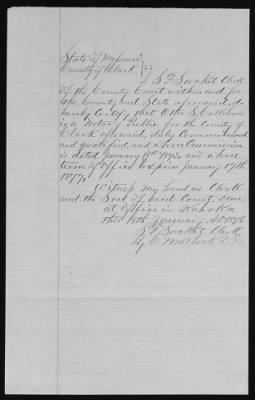 State of Missouri
County of Clark } ss
I S F Sacket Clerk
of the County Court within and for
the County and State aforesaid, do
hereby Certify that S. Callihan
is a Notary Public for the County of
Clark aforesaid, duly Commissioned
and qualified, and whose Commission
is dated January 1874, and whose
term of Office expires January 17th
1877,
Witness my hand as Clerk
and the Seal of said Court, done
at Office in Kahoka
this 18th January AD 1876
S F Sacket Clerk
By C Matlock D.C.